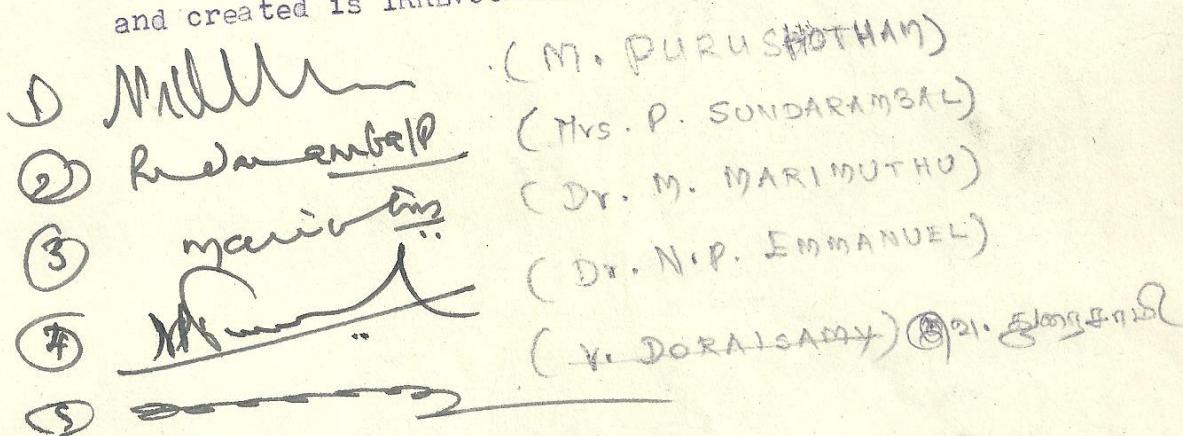 and created is
1) (M. PURUSHOTHAM)
2) (Mrs. P. SUNDARAMBAL)
3) (Dr. M. MARIMUTHU)
4) (Dr. N.P. EMMANUEL)
5) (V. DORAISAMY) வ. துரைசாமி